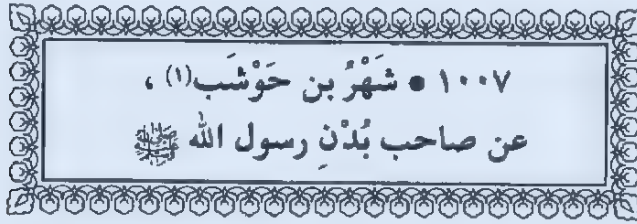 ١٠٠٧ ● شَهْرُ بن حَوْشَب(١) ،
عن صاحب بُدْنِ رسول الله ﷺ